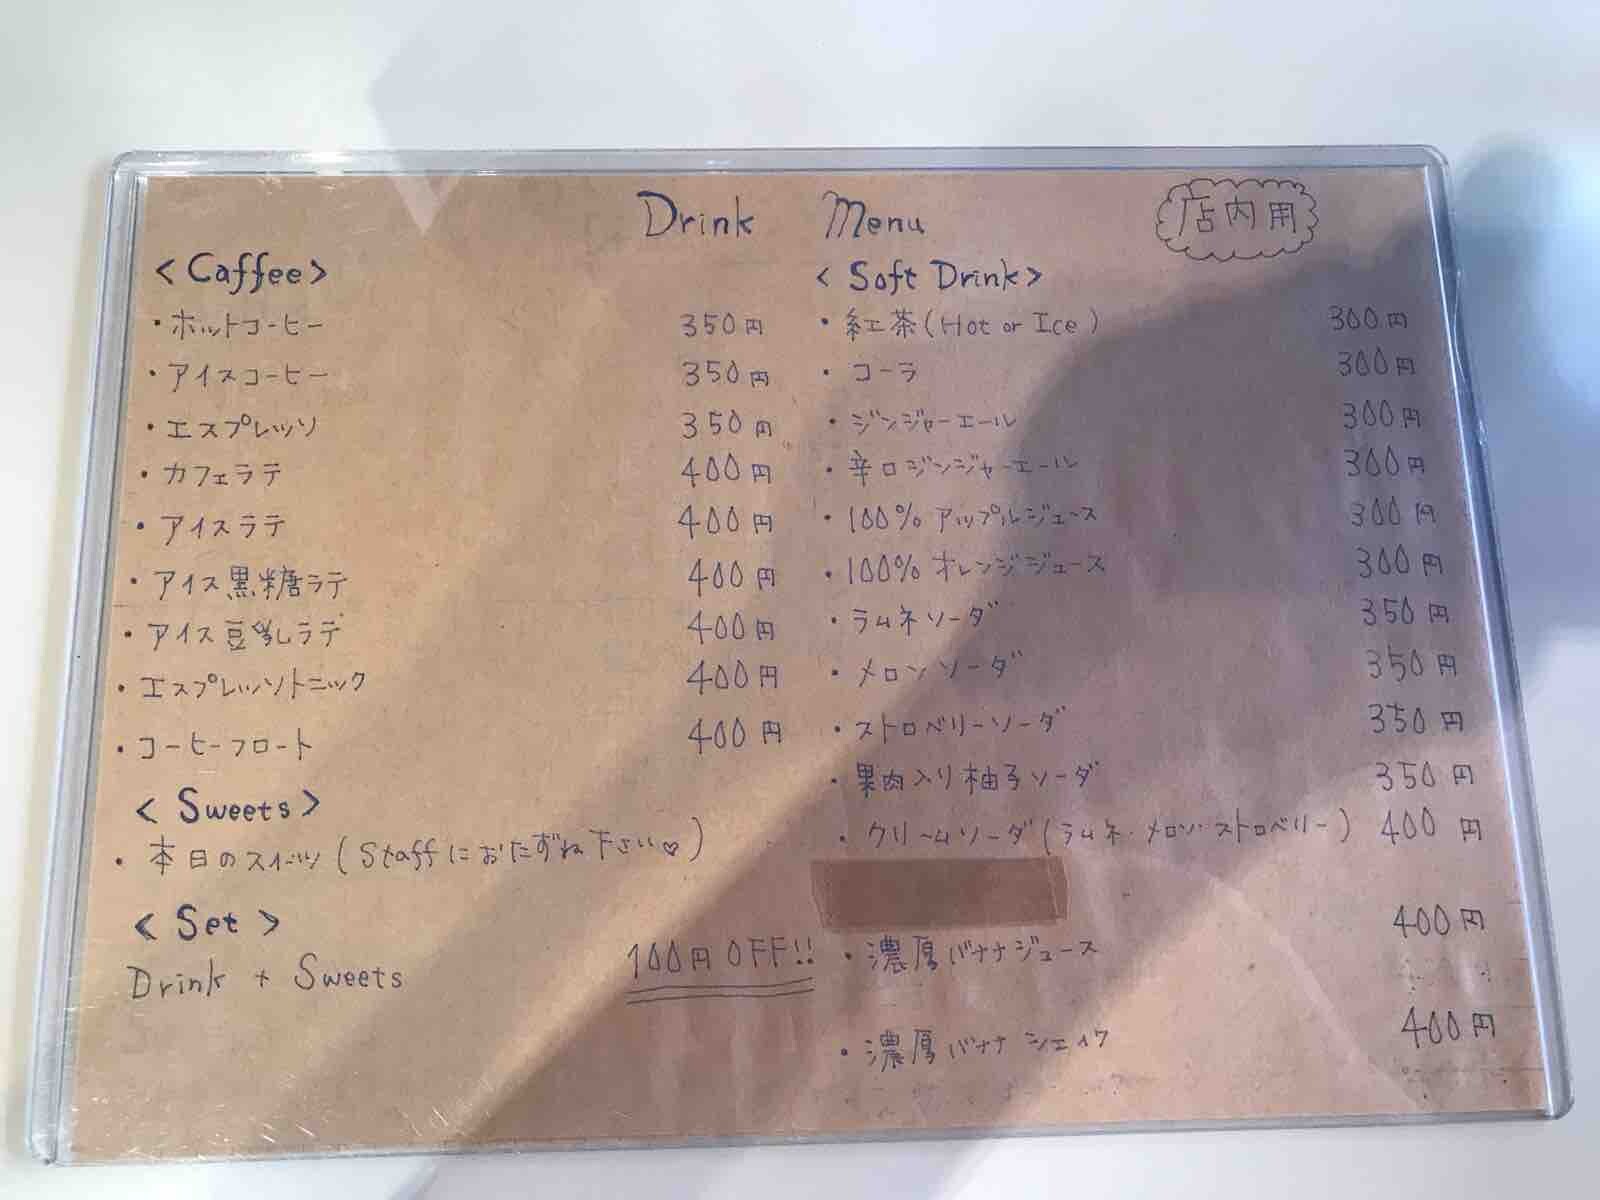 Drink Menu
店内用
<Caffee>
・ホットコーヒー 350円
・アイスコーヒー 350円
・エスプレッソ 350円
・カフェラテ 400円
・アイスラテ 400円
・アイス黒糖ラテ 400円
・アイス豆乳ラテ 400円
・エスプレッソトニック 400円
・コーヒーフロート 400円
<Sweets>
・本日のスイーツ (Staffにおたずね下さい♡)
<Set>
Drink + Sweets 100円OFF!!
<Soft Drink>
・紅茶(Hot or Ice) 300円
・コーラ 300円
・ジンジャーエール 300円
・辛口ジンジャーエール 300円
・100% アップルジュース 300円
・100% オレンジジュース 300円
・ラムネソーダ 350円
・メロンソーダ 350円
・ストロベリーソーダ 350円
・果肉入り柚子ソーダ 350円
・クリームソーダ(ラムネ・メロン・ストロベリー) 400円
・濃厚バナナジュース 400円
・濃厚バナナシェイク 400円